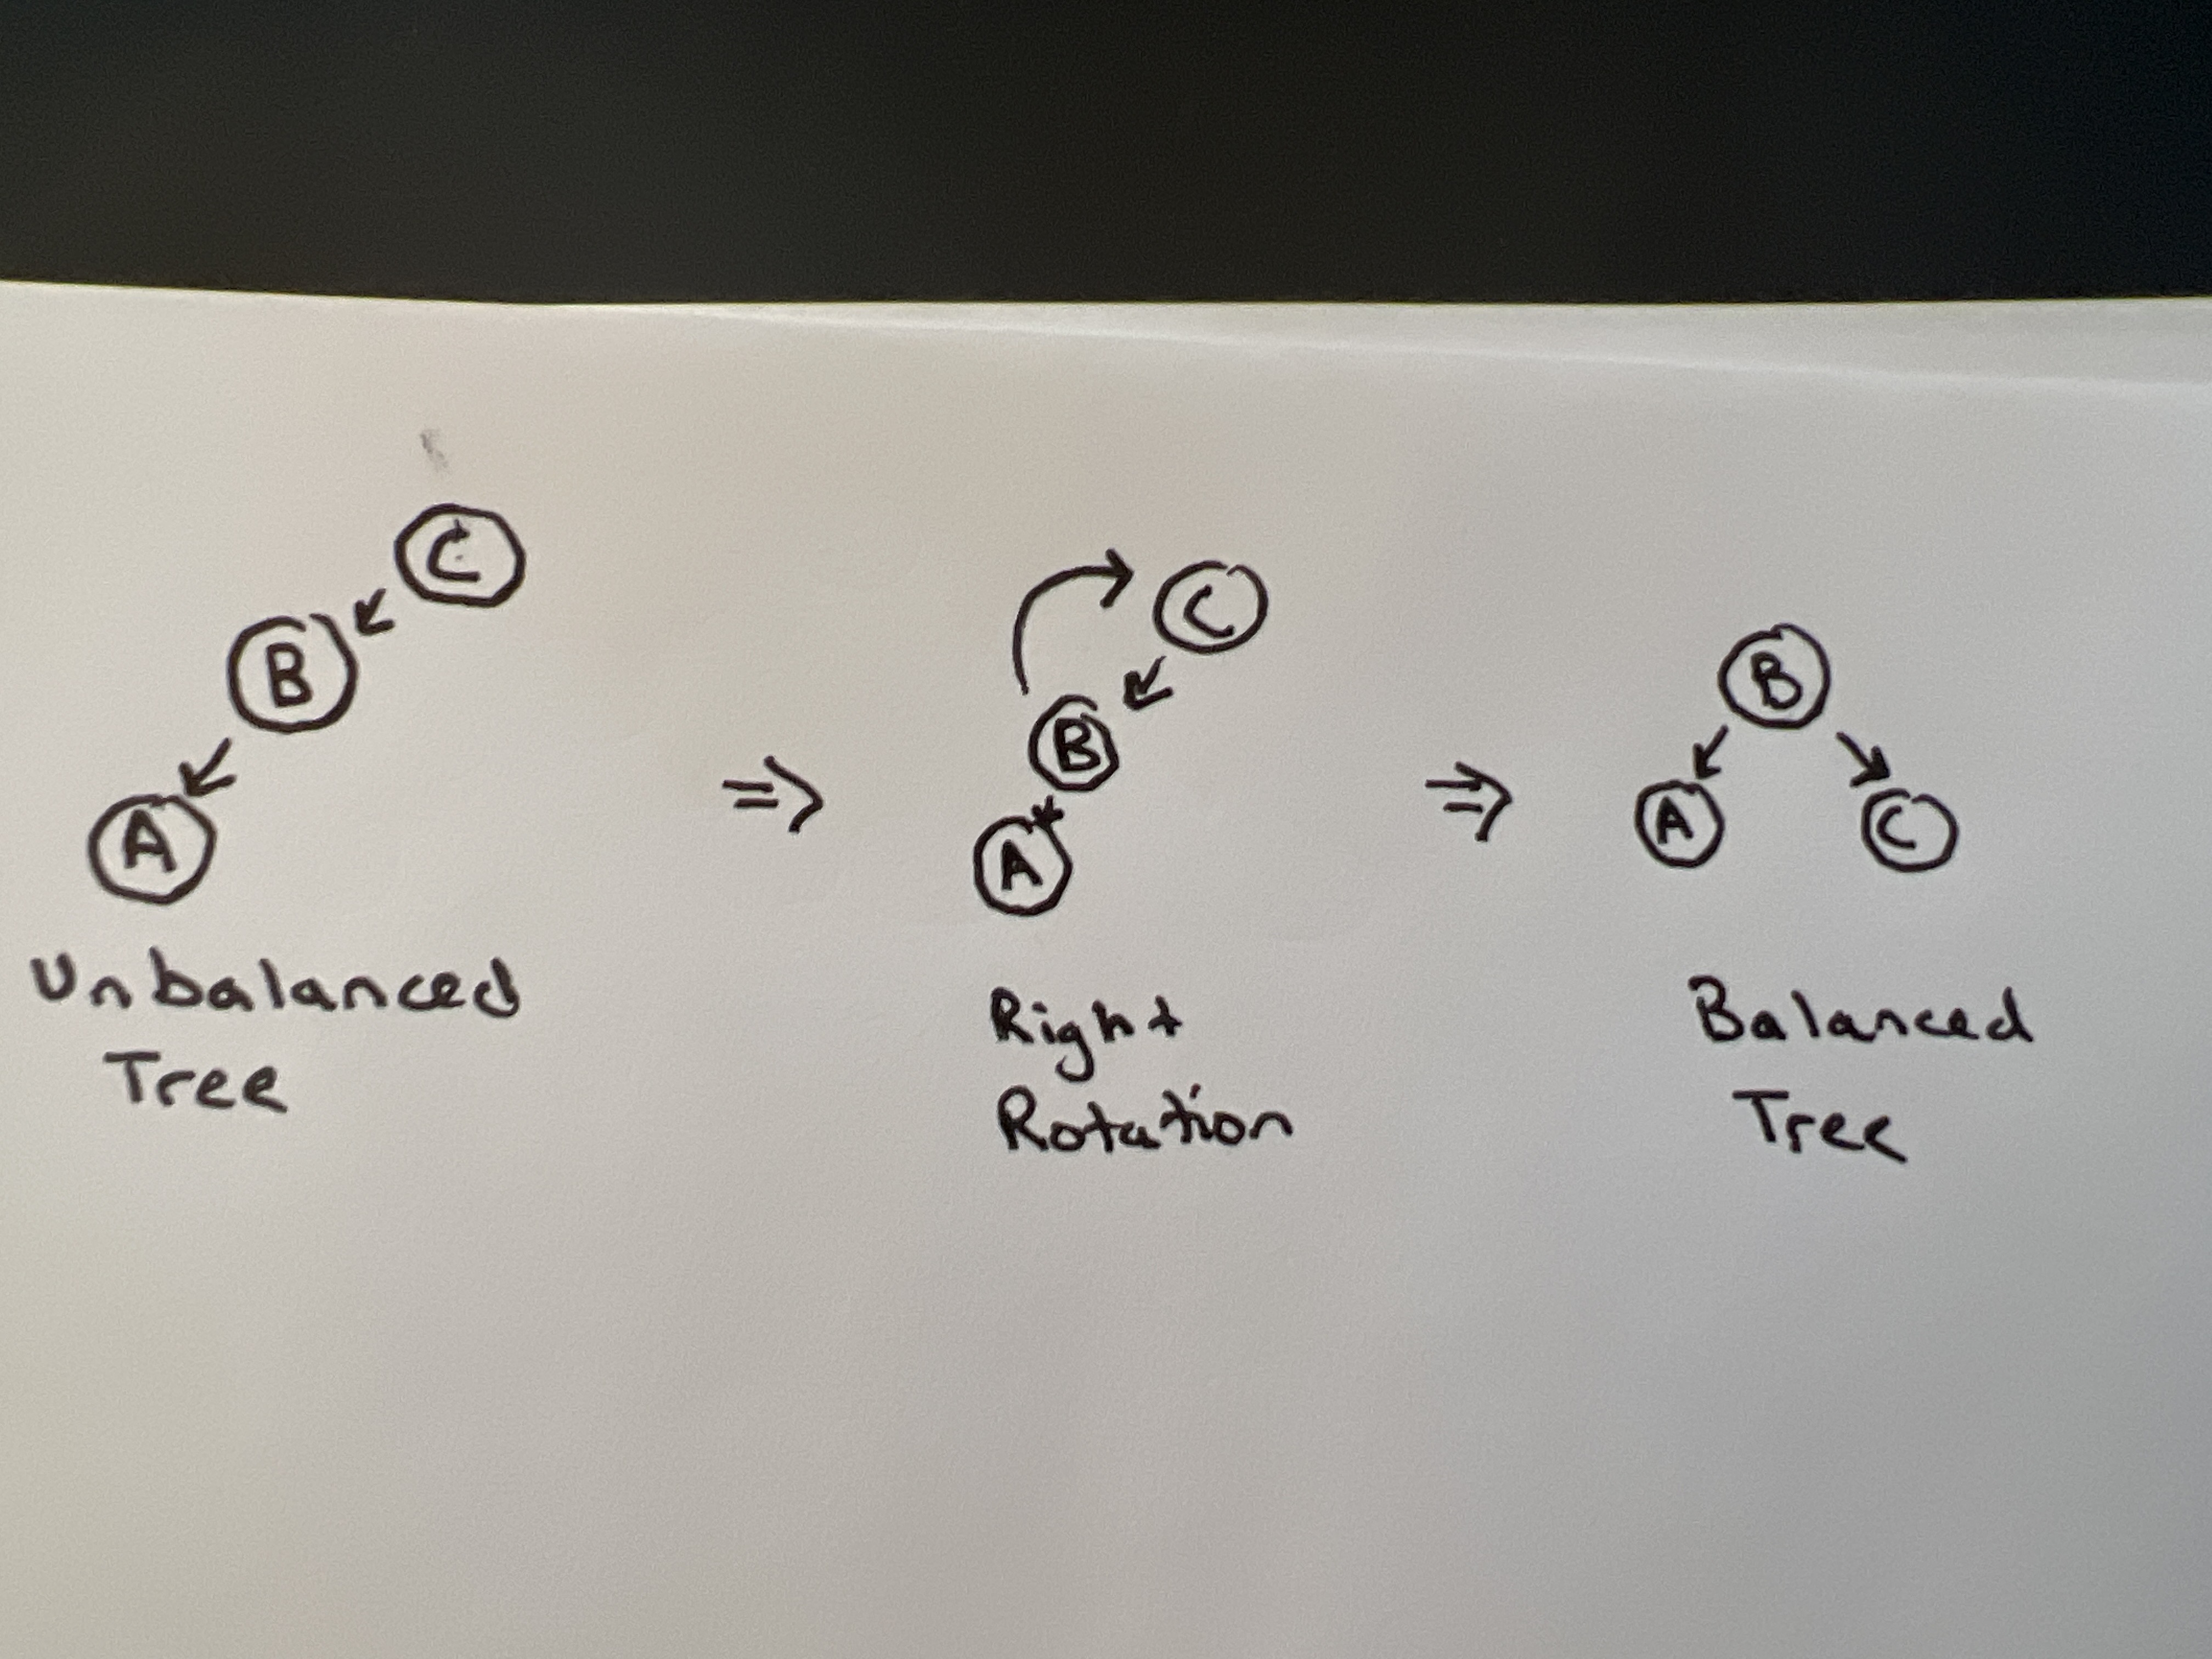 C
B
A
Unbalanced
Tree
⇒
C
B
A
Right
Rotation
⇒
B
A C
Balanced
Tree